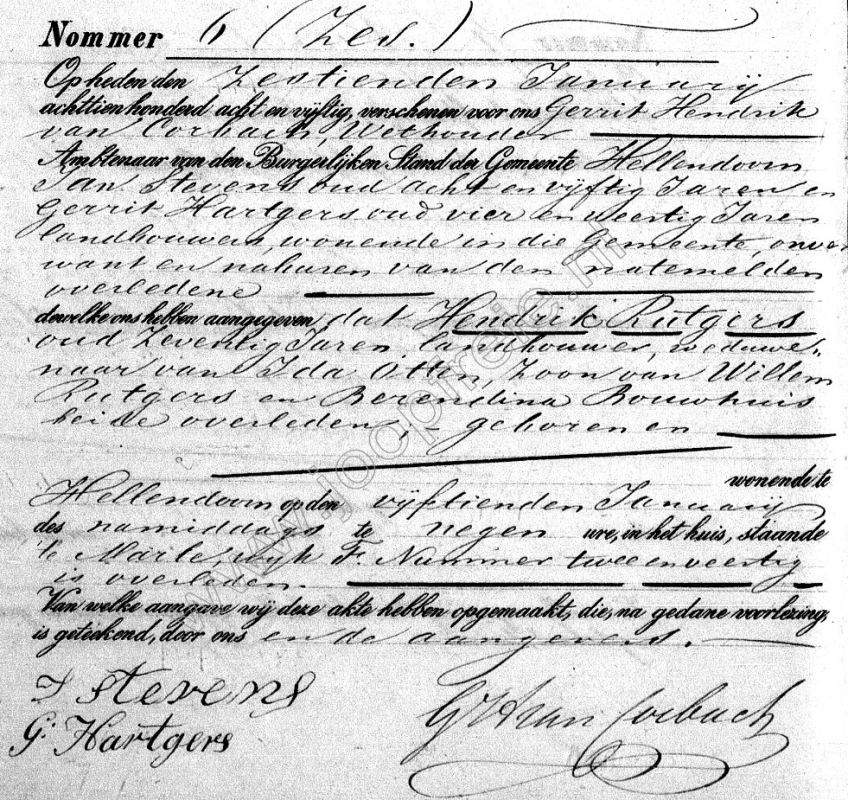 Nommer 6 (Zes.)
Op heden den Zestienden Januarij
achttienhonderd acht en vijftig, verschenen voor ons Gerrit Hendrik
van Corbach, Wethouder
Ambtenaar van den Burgerlijken Stand der Gemeente Hellendoorn
Jan Stevens oud acht en vijftig Jaren en
Gerrit Hartgers oud vier en veertig Jaren
landbouwers, wonende in die Gemeente, onver
want en naburen van den natemelden
overledene
dewelke ons hebben aangegeven, dat Hendrik Rutgers
oud Zeventig Jaren, landbouwer, weduwe„
naar van Ida Otten, Zoon van Willem
Rutgers en Berendina Bouwhuis
beide overleden, – geboren en
wonende te
Hellendoorn op den vijftienden Januarij
des namiddags te negen ure, in het huis, staande
te Marle, wijk F. Nummer twee en veertig
is overleden.
Van welke aangave wij deze akte hebben opgemaakt, die, na gedane voorlezing,
is geteekend, door ons en de aangevers.
J Stevens
G. Hartgers
GH van Corbach
www.jooptreffe.nl